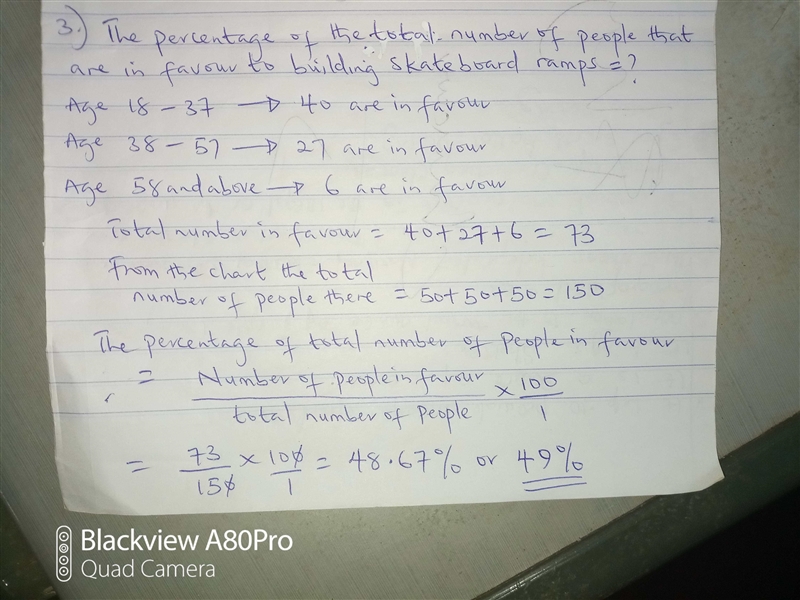 3.) The percentage of the total number of people that
are in favour to building skateboard ramps = ?
Age 18 - 37 → 40 are in favour
Age 38 - 57 → 27 are in favour
Age 58 and above → 6 are in favour
Total number in favour = 40 + 27 + 6 = 73
From the chart the total
number of people there = 50 + 50 + 50 = 150
The percentage of total number of people in favour
= Number of people in favour / total number of people × 100 / 1
= 73 / 150 × 100 / 1 = 48.67% or 49%
Blackview A80Pro
Quad Camera